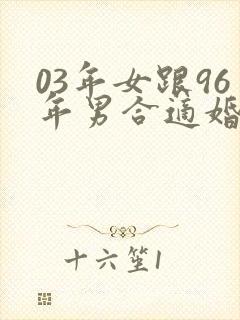 03年女跟96
年男合适婚
十六笙1